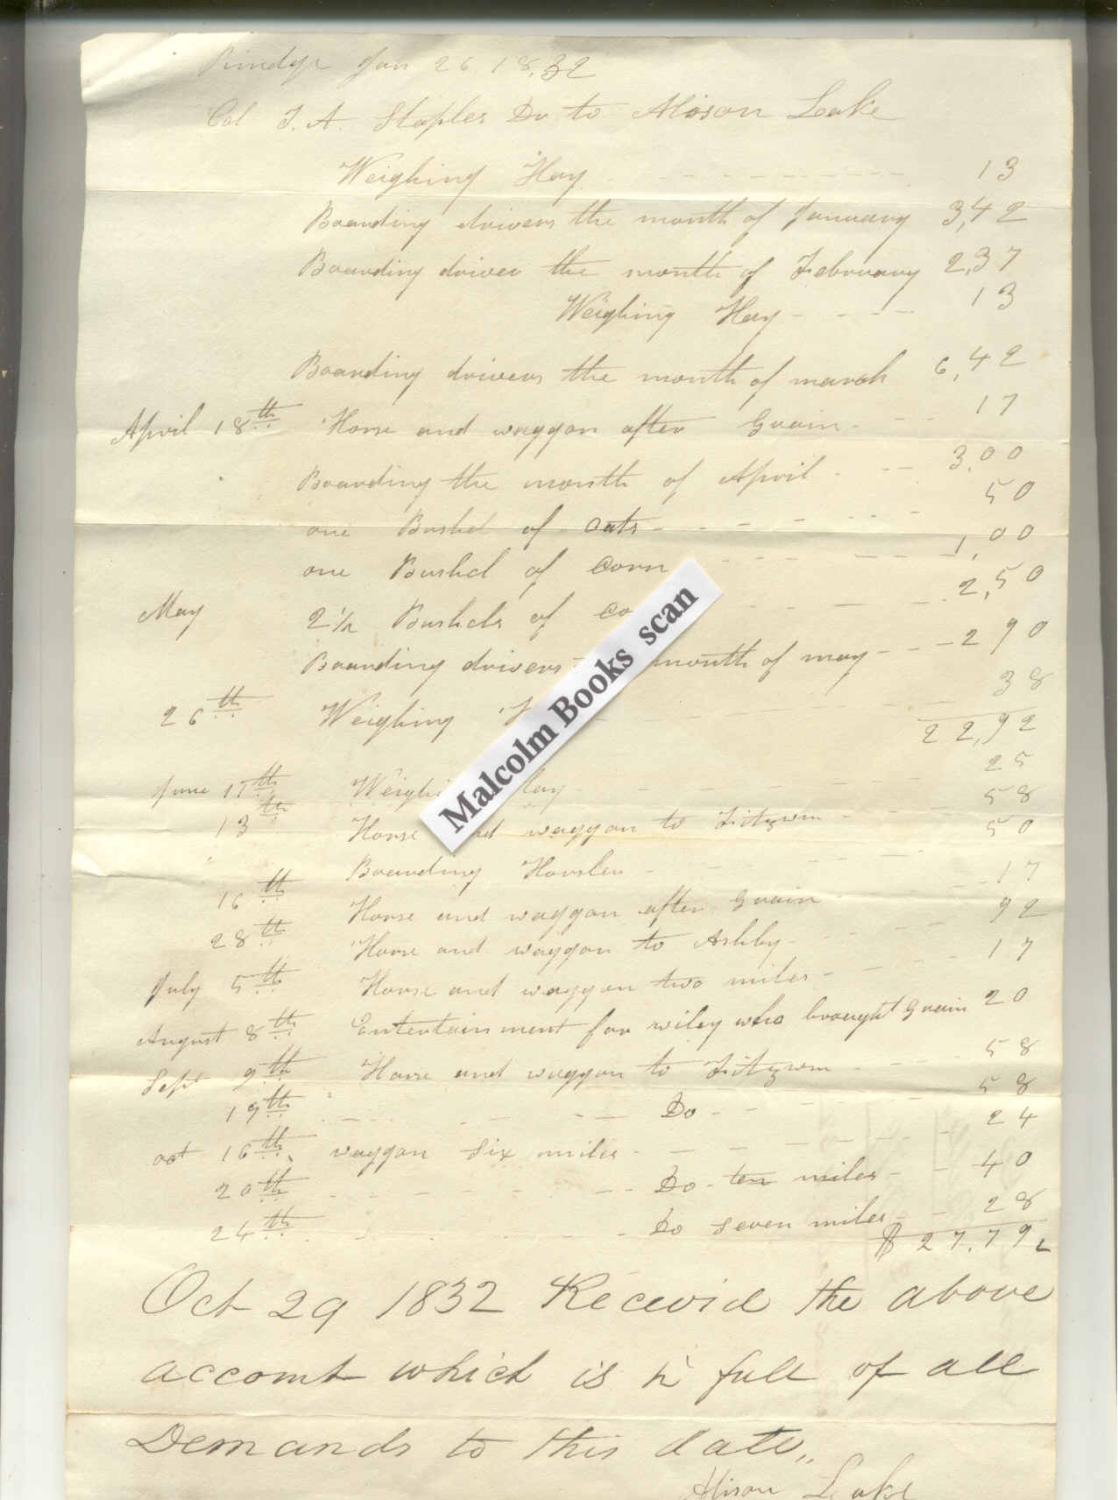 Rindge Jan 26 1832
Col T. A. Staples Dr to Alison Lake
Weighing Hay - - - - 13
Boarding drivers the month of January 3,42
Boarding driver the month of February 2,37
Weighing Hay - - - - 13
Boarding drivers the month of march 6,42
April 18th Horse and waggon after Grain - - 17
Boarding the month of April - - - 3,00
one Bushel of oats - - - - 50
one Bushel of Corn - - - - 1,00
May 2 1/2 Bushels of Co - - - - 2,50
Boarding drivers month of may - - - 2 90
26th Weighing - - - 38
22,92
June 11th Weighi Hay - - - - 25
13th Horse nd waggon to Fitzwm - 58
Boarding Horsler - - - - 50
16th Horse and waggon after Grain - - 17
28th Horse and waggon to Ashby - - - 92
July 5th Horse and waggon two miles - - - 17
August 8th Entertainment for wiley who brought Grain 20
Sept 9th Horse and waggon to Fitzwm - - - 58
19th - - - - Do - - - - 58
oct 16th waggon six miles - - - - 24
20th - - - - Do - ten miles - - 40
24th - - - - Do seven miles - - 28
$27.79
Oct 29 1832 Receivid the above
accomt which is in full of all
Demands to this date,,
Alison Lake
Malcolm Books scan